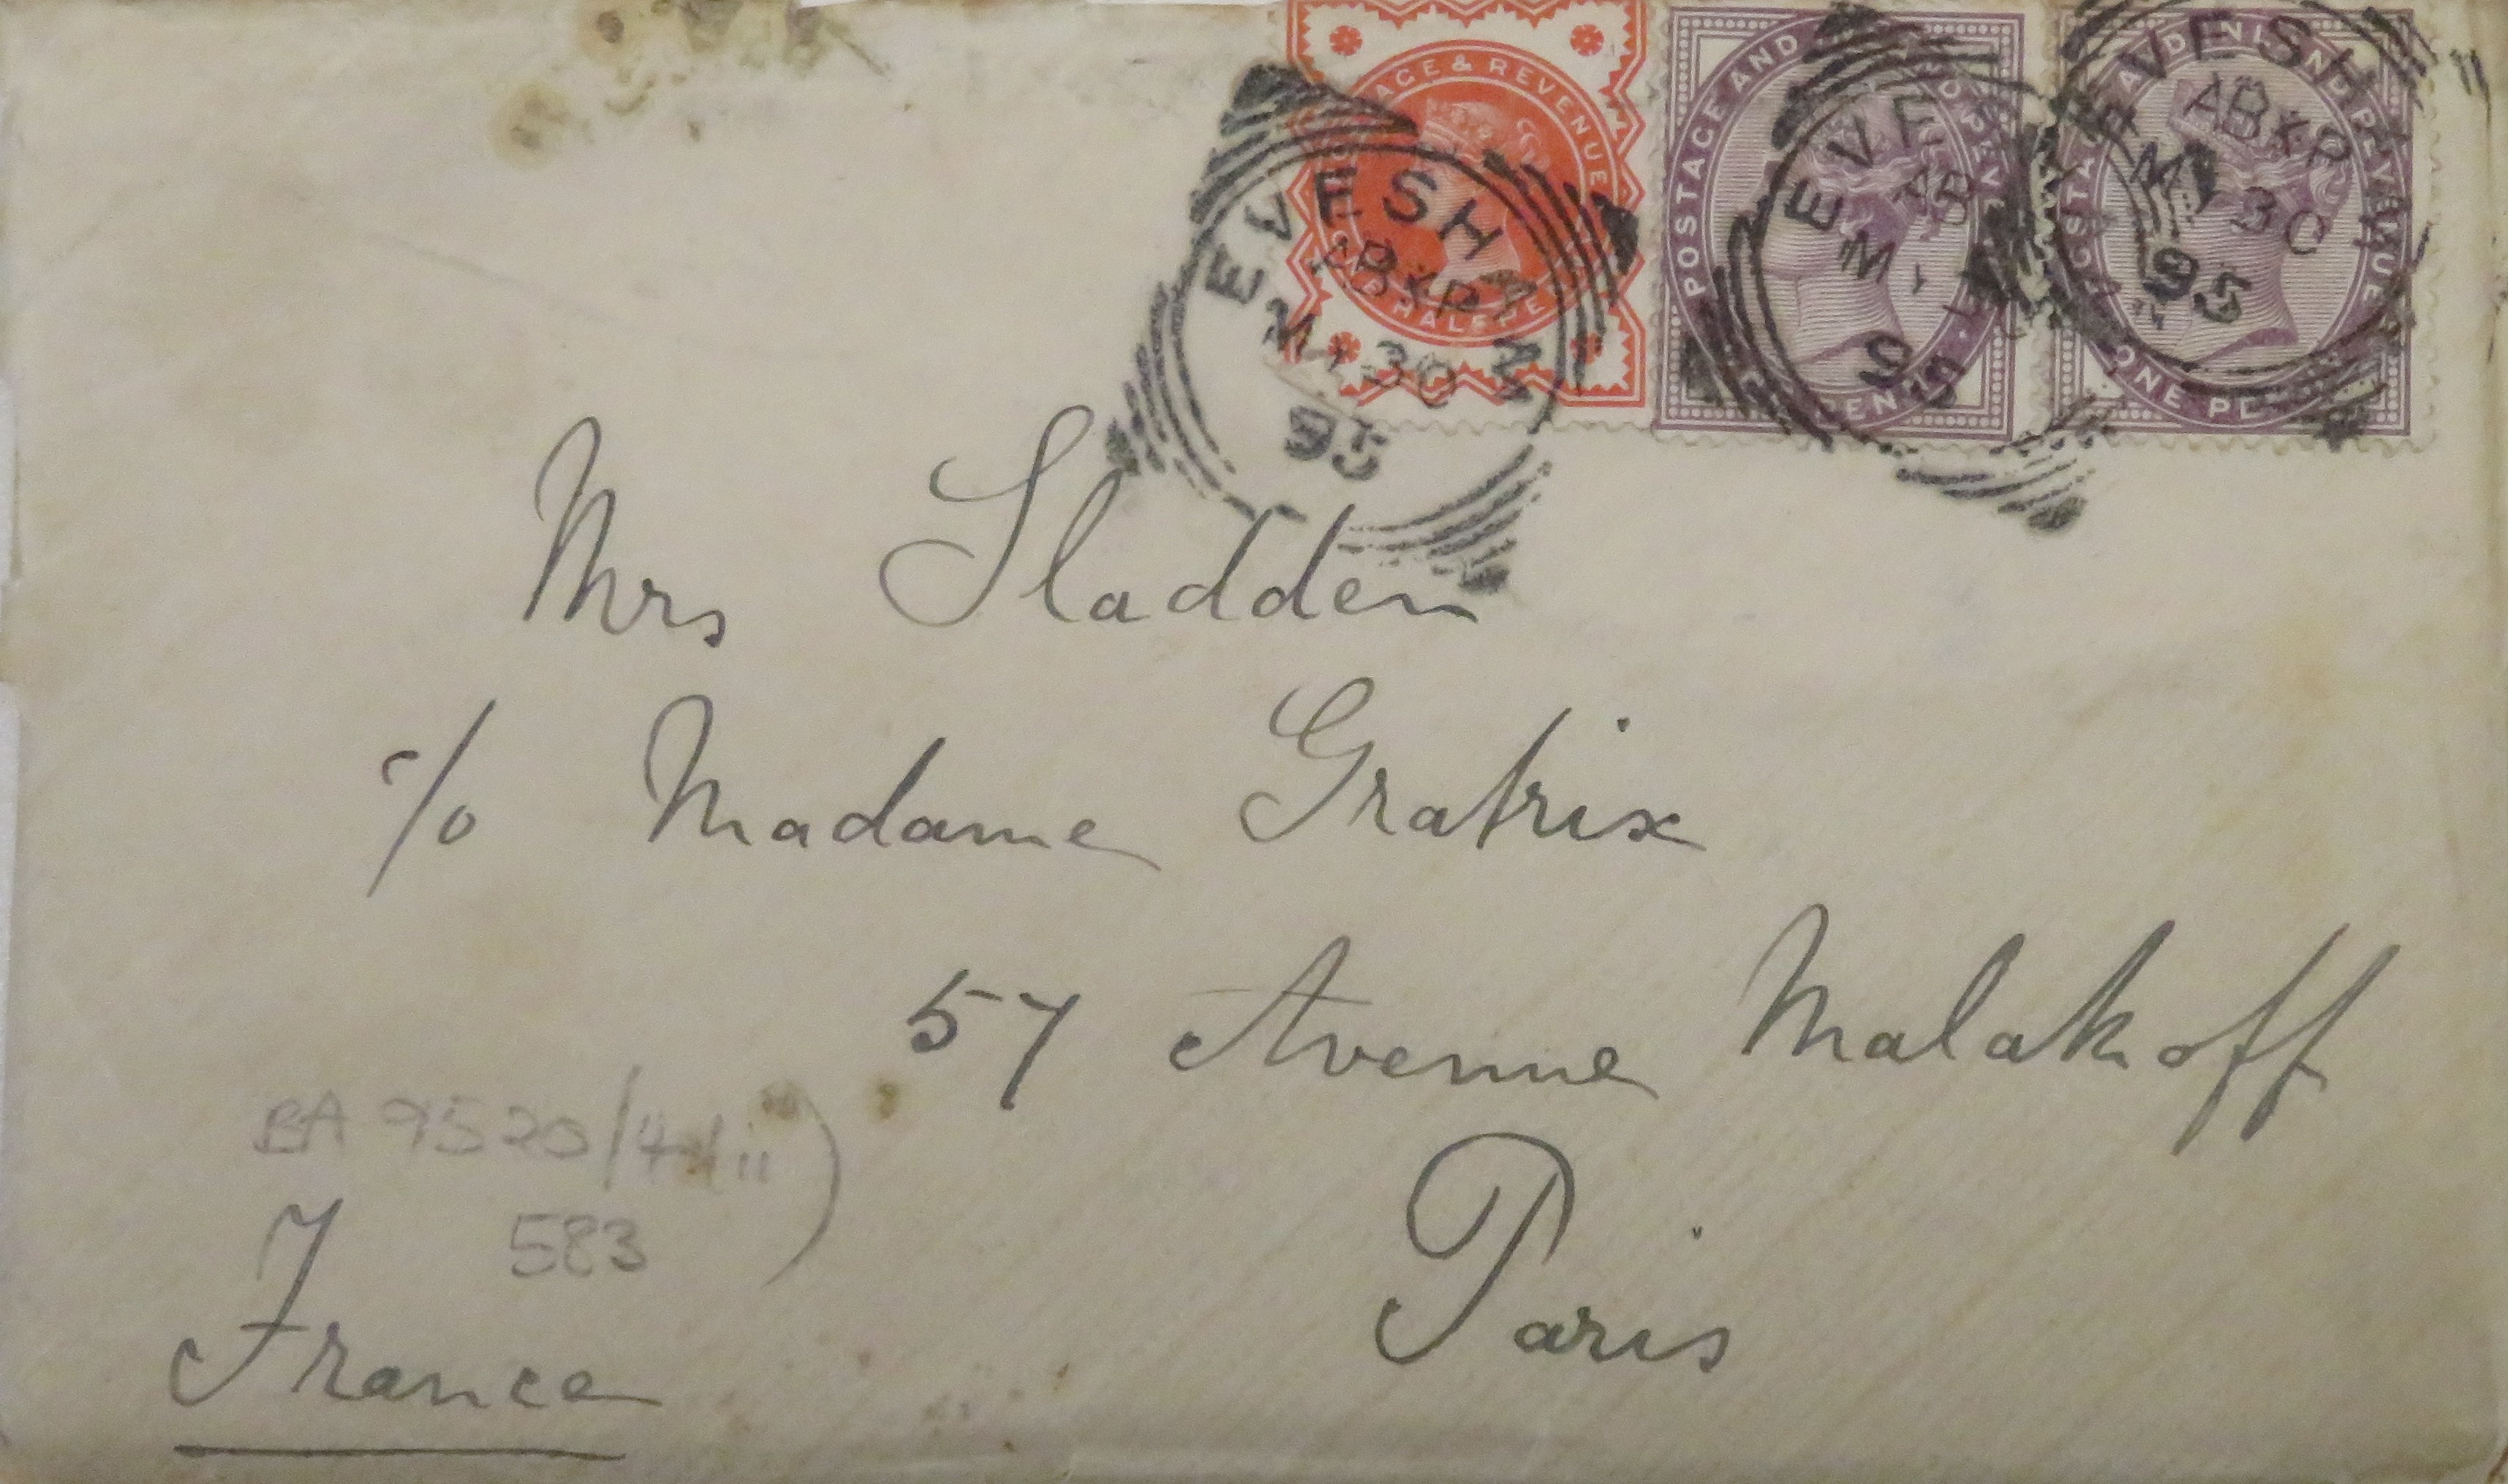 POSTAGE & REVENUE
HALFPENNY
POSTAGE AND
POSTAGE AND INLAND REVENUE
ONE PENNY
EVESHAM
AB*P
MY 30
95
EVESHAM
AB
MY
95
EVESHAM
AB*P
MY 30
95
Mrs Sladden
c/o Madame Gratrix
57 Avenue Malakoff
Paris
BA 9520/4/ii)
583
France